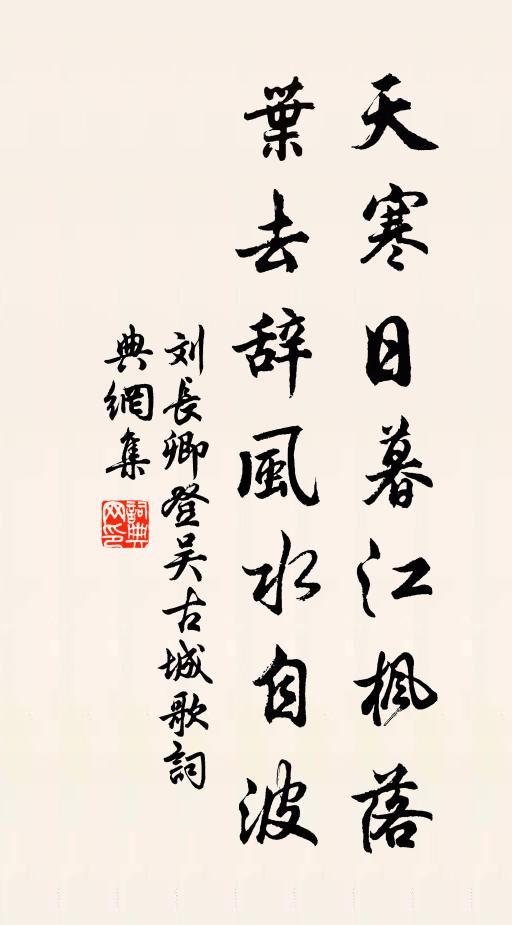 天寒日暮江枫落
葉去辞風水自波
刘長卿登吴古城歌詞
典網集
詞典网印